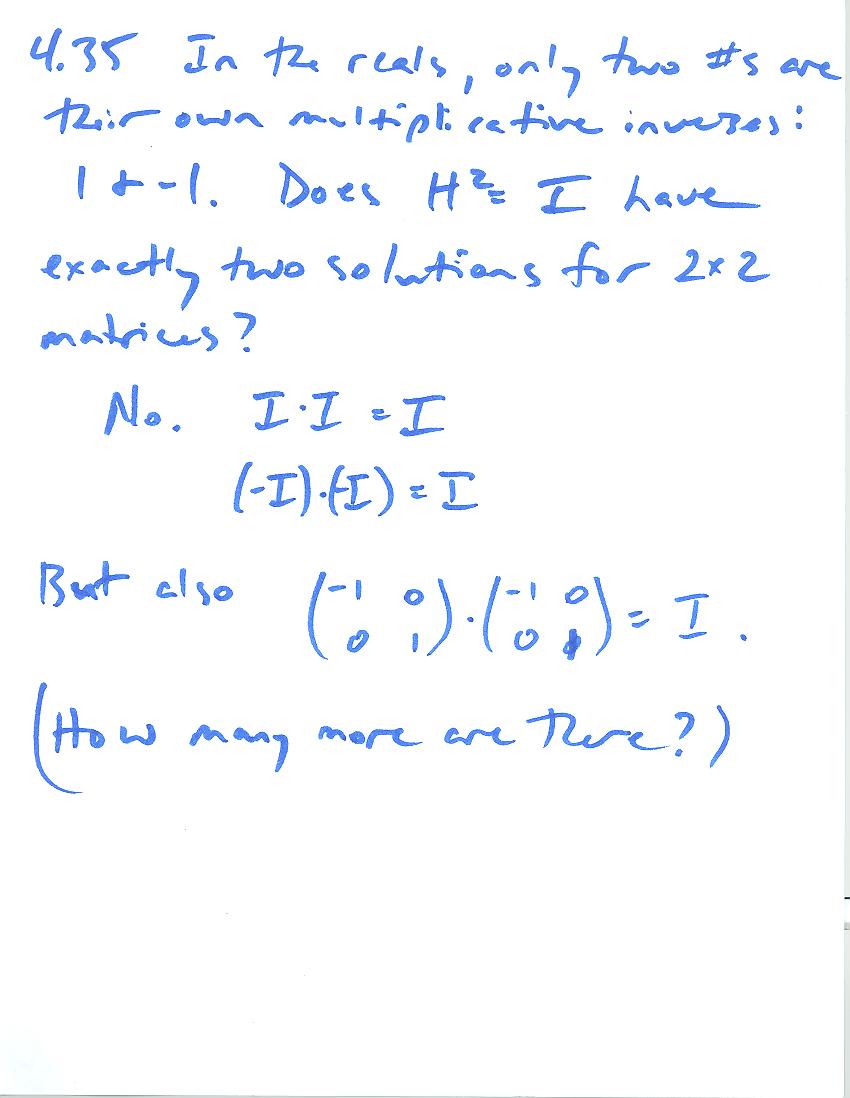 4.35 In the reals, only two #s are
their own multiplicative inverses:
1 + -1. Does H² = I have
exactly two solutions for 2×2
matrices?
No. I·I = I
(-I)·(-I) = I
But also (-1 0; 0 1)·(-1 0; 0 1) = I.
(How many more are there?)